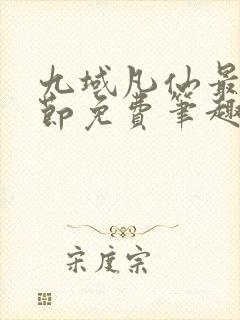 九域凡仙最
节免费笔趣
宋度宗